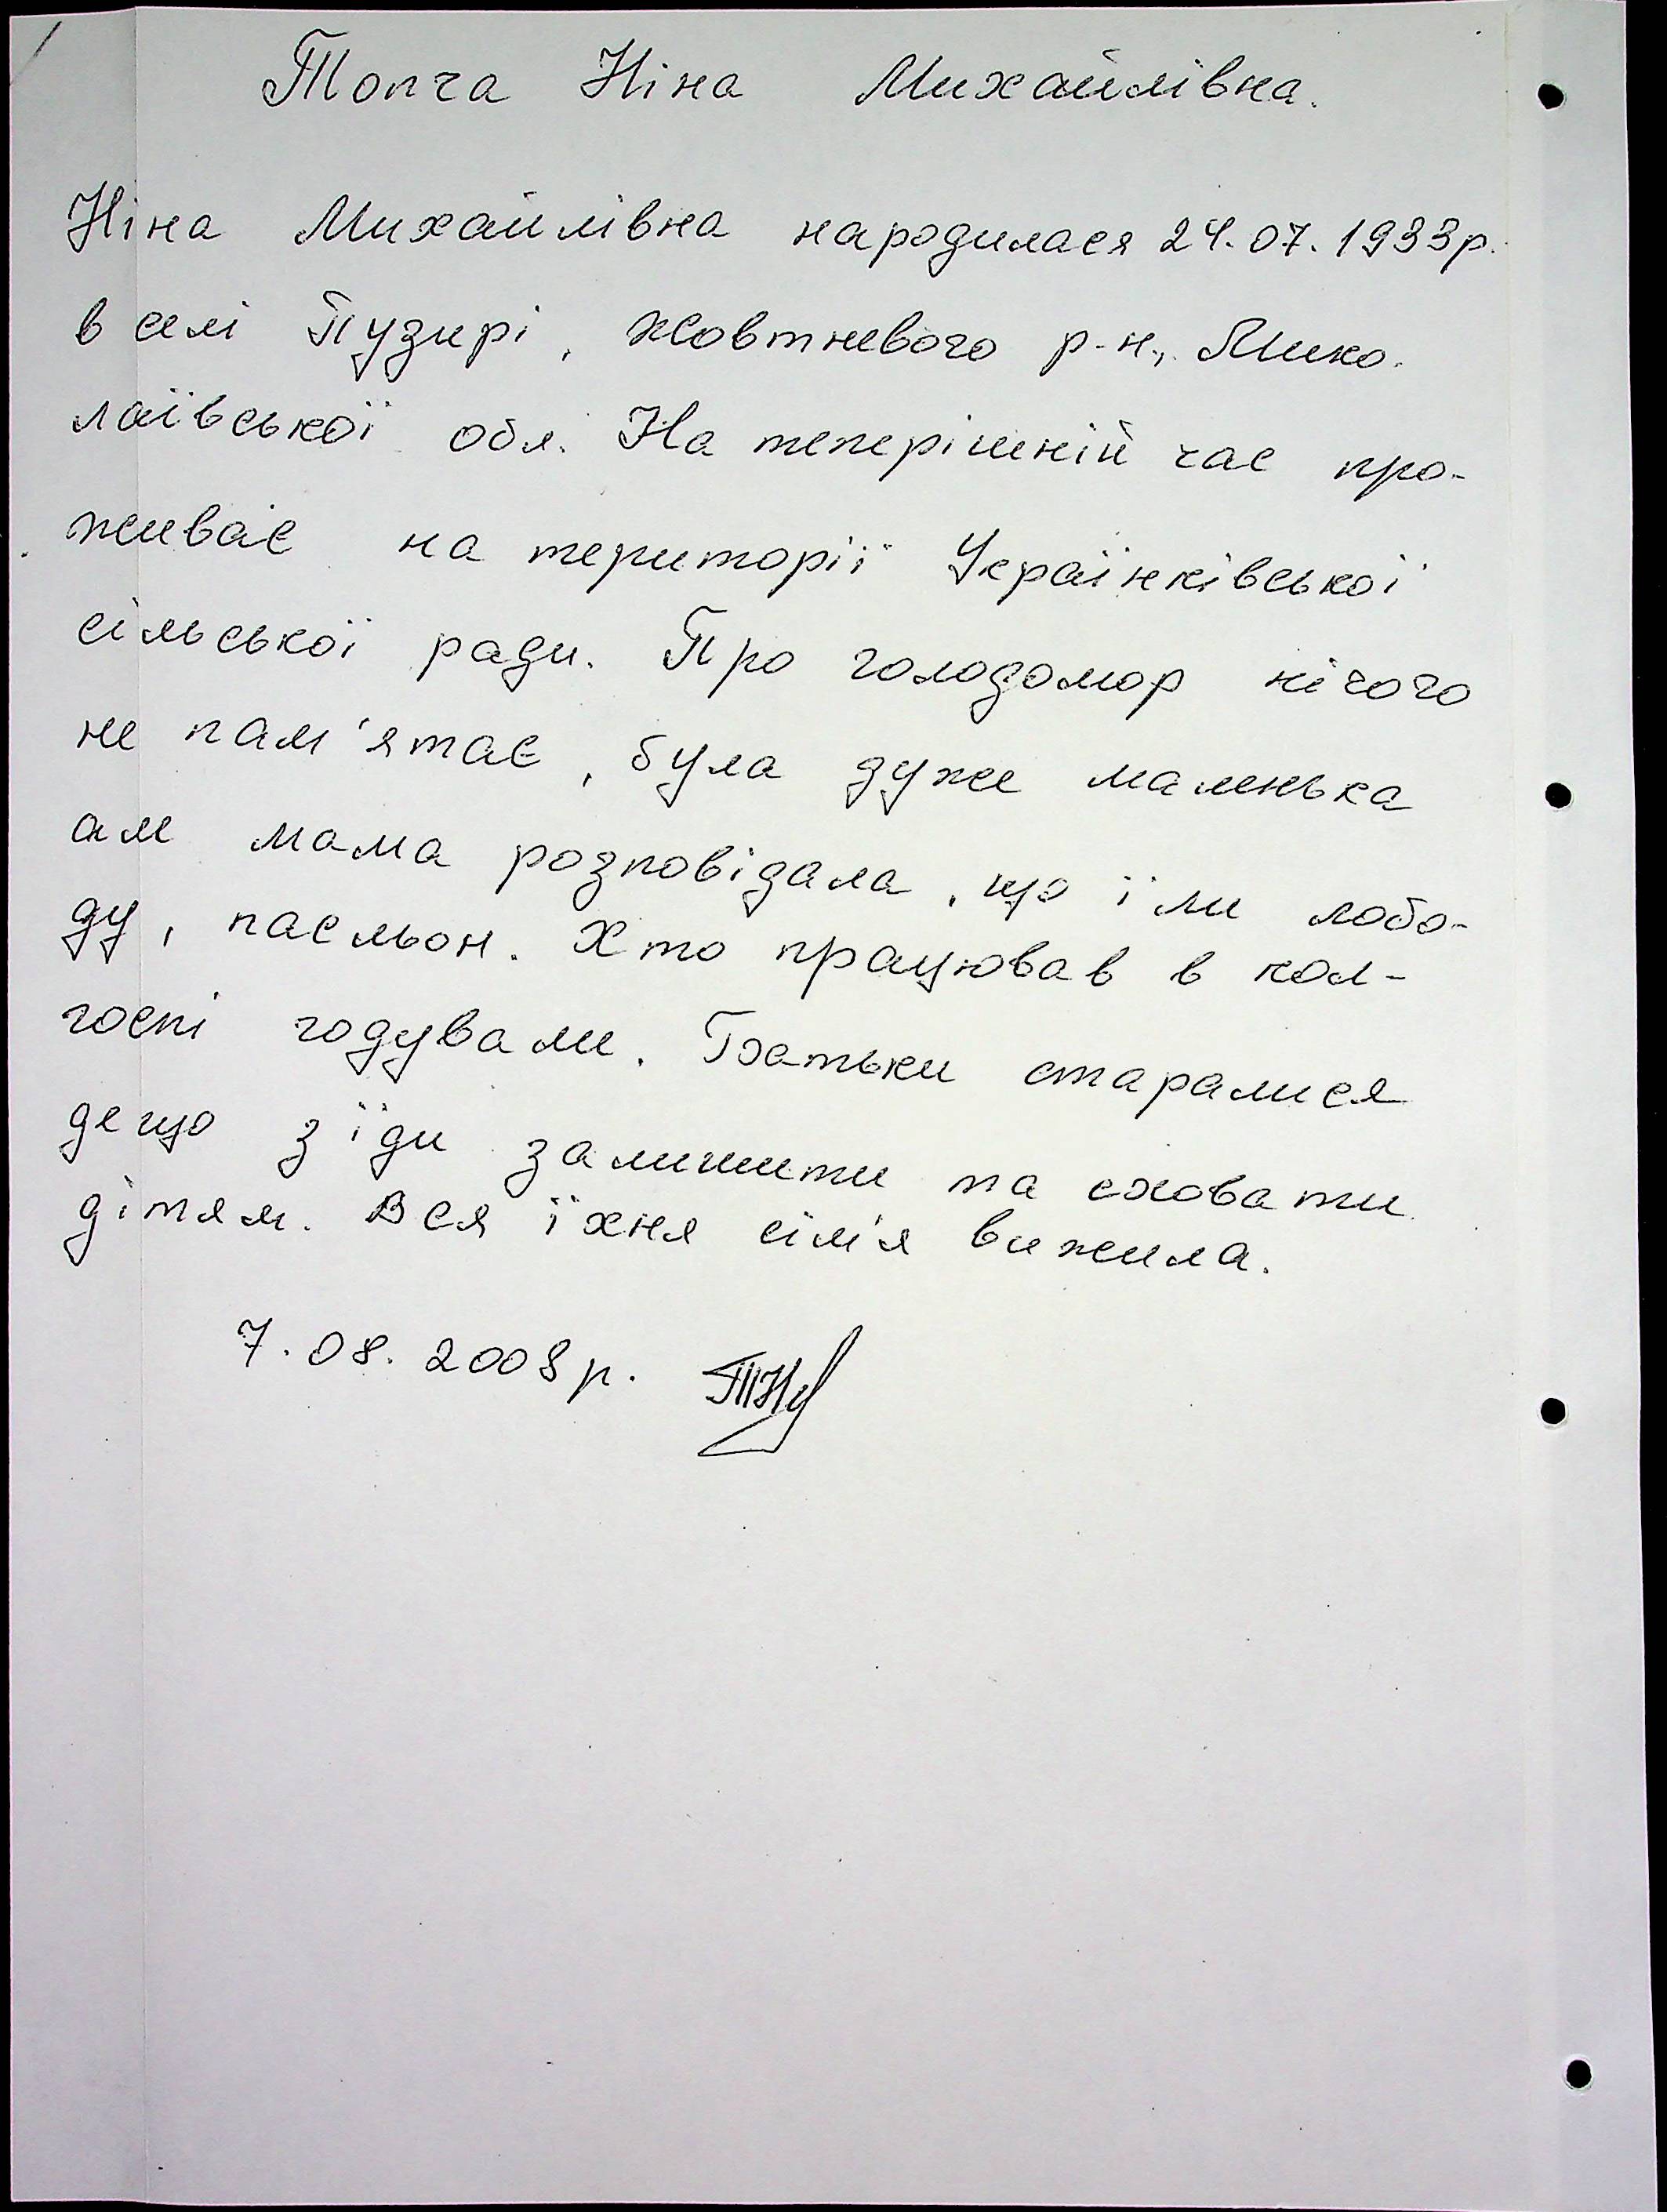 Топча Ніна Михайлівна.
Ніна Михайлівна народилася 24.07.1933р.
в селі Пузирі, Жовтневого р-н., Мико-
лаївської обл. На теперішній час про-
живає на території Українківської
сільської ради. Про голодомор нічого
не пам'ятає, була дуже маленька
але мама розповідала, що їли лобо-
ду, пасльон. Хто працював в кол-
госпі годували. Батьки старалися
дещо з їди залишити та сховати
дітям. Вся їхня сім'я вижила.
7.08.2008р.